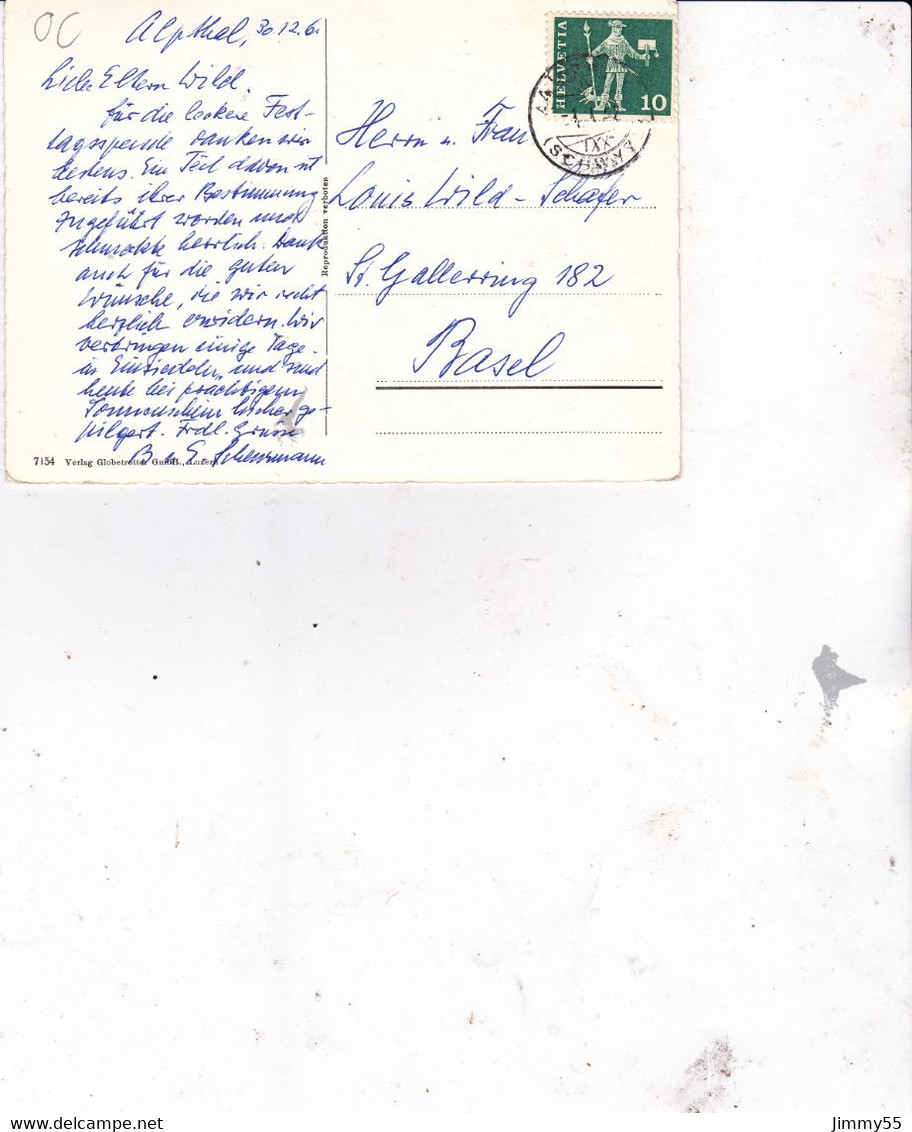 OC
Alpthal, 30.12.61
Liebe Eltern Wild,
für die leckere Fest-
tagsspende danken wir
bestens. Ein Teil davon ist
bereits ihrer Bestimmung
zugeführt worden und
schmeckte herrlich. Dank
auch für die guten
Wünsche, die wir recht
herzlich erwidern. Wir
verbringen einige Tage
in Einsiedeln und sind
heute bei prächtigem
Sonnenschein hierher ge-
pilgert. Frdl. Grüsse
B. u. E.
7154 Verlag Globetrotter GmbH., Luzern
Reproduktion verboten
HELVETIA
10
XXI
(SCHWYZ)
Herrn u. Frau
Louis Wild-Schäfer
St. Gallerring 182
Basel
Jimmy55